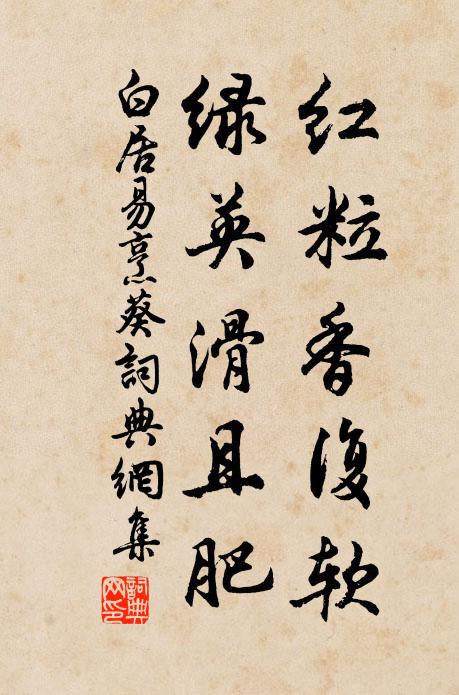 红粒香復软
绿英滑且肥
白居易亨葵詞典網集
詞典网印